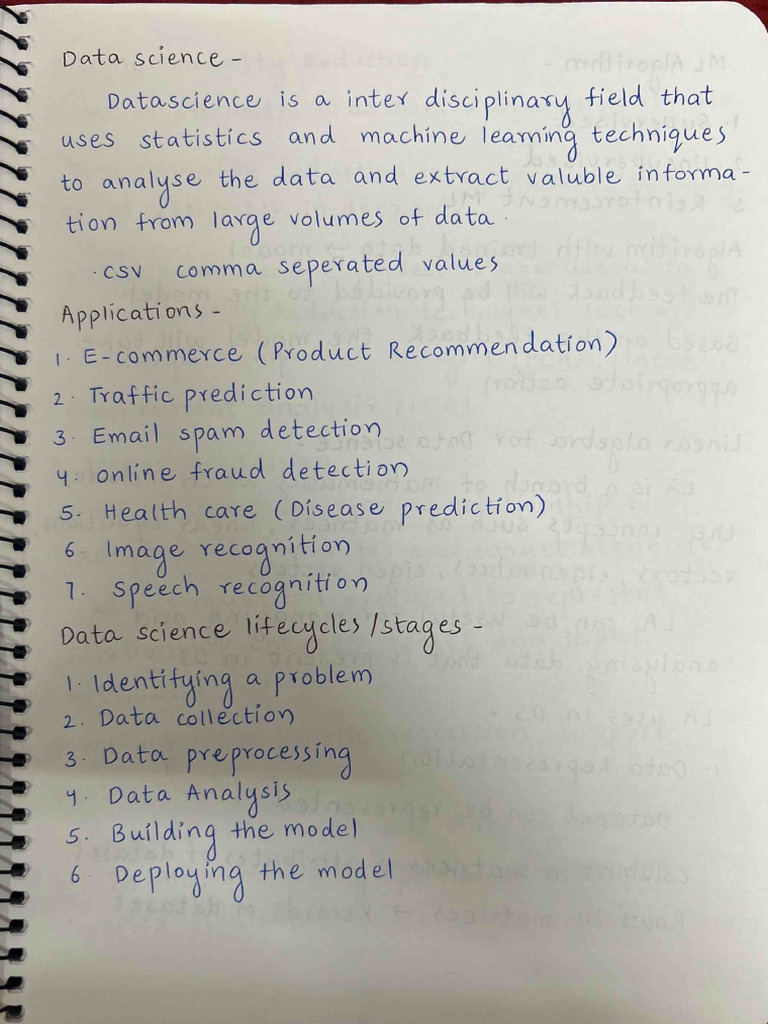 Data science -
Datascience is a inter disciplinary field that
uses statistics and machine learning techniques
to analyse the data and extract valuble informa-
tion from large volumes of data.
.csv comma seperated values
Applications -
1. E-commerce (Product Recommendation)
2. Traffic prediction
3. Email spam detection
4. online fraud detection
5. Health care (Disease prediction)
6. Image recognition
7. Speech recognition
Data science lifecycles/stages -
1. Identifying a problem
2. Data collection
3. Data preprocessing
4. Data Analysis
5. Building the model
6. Deploying the model